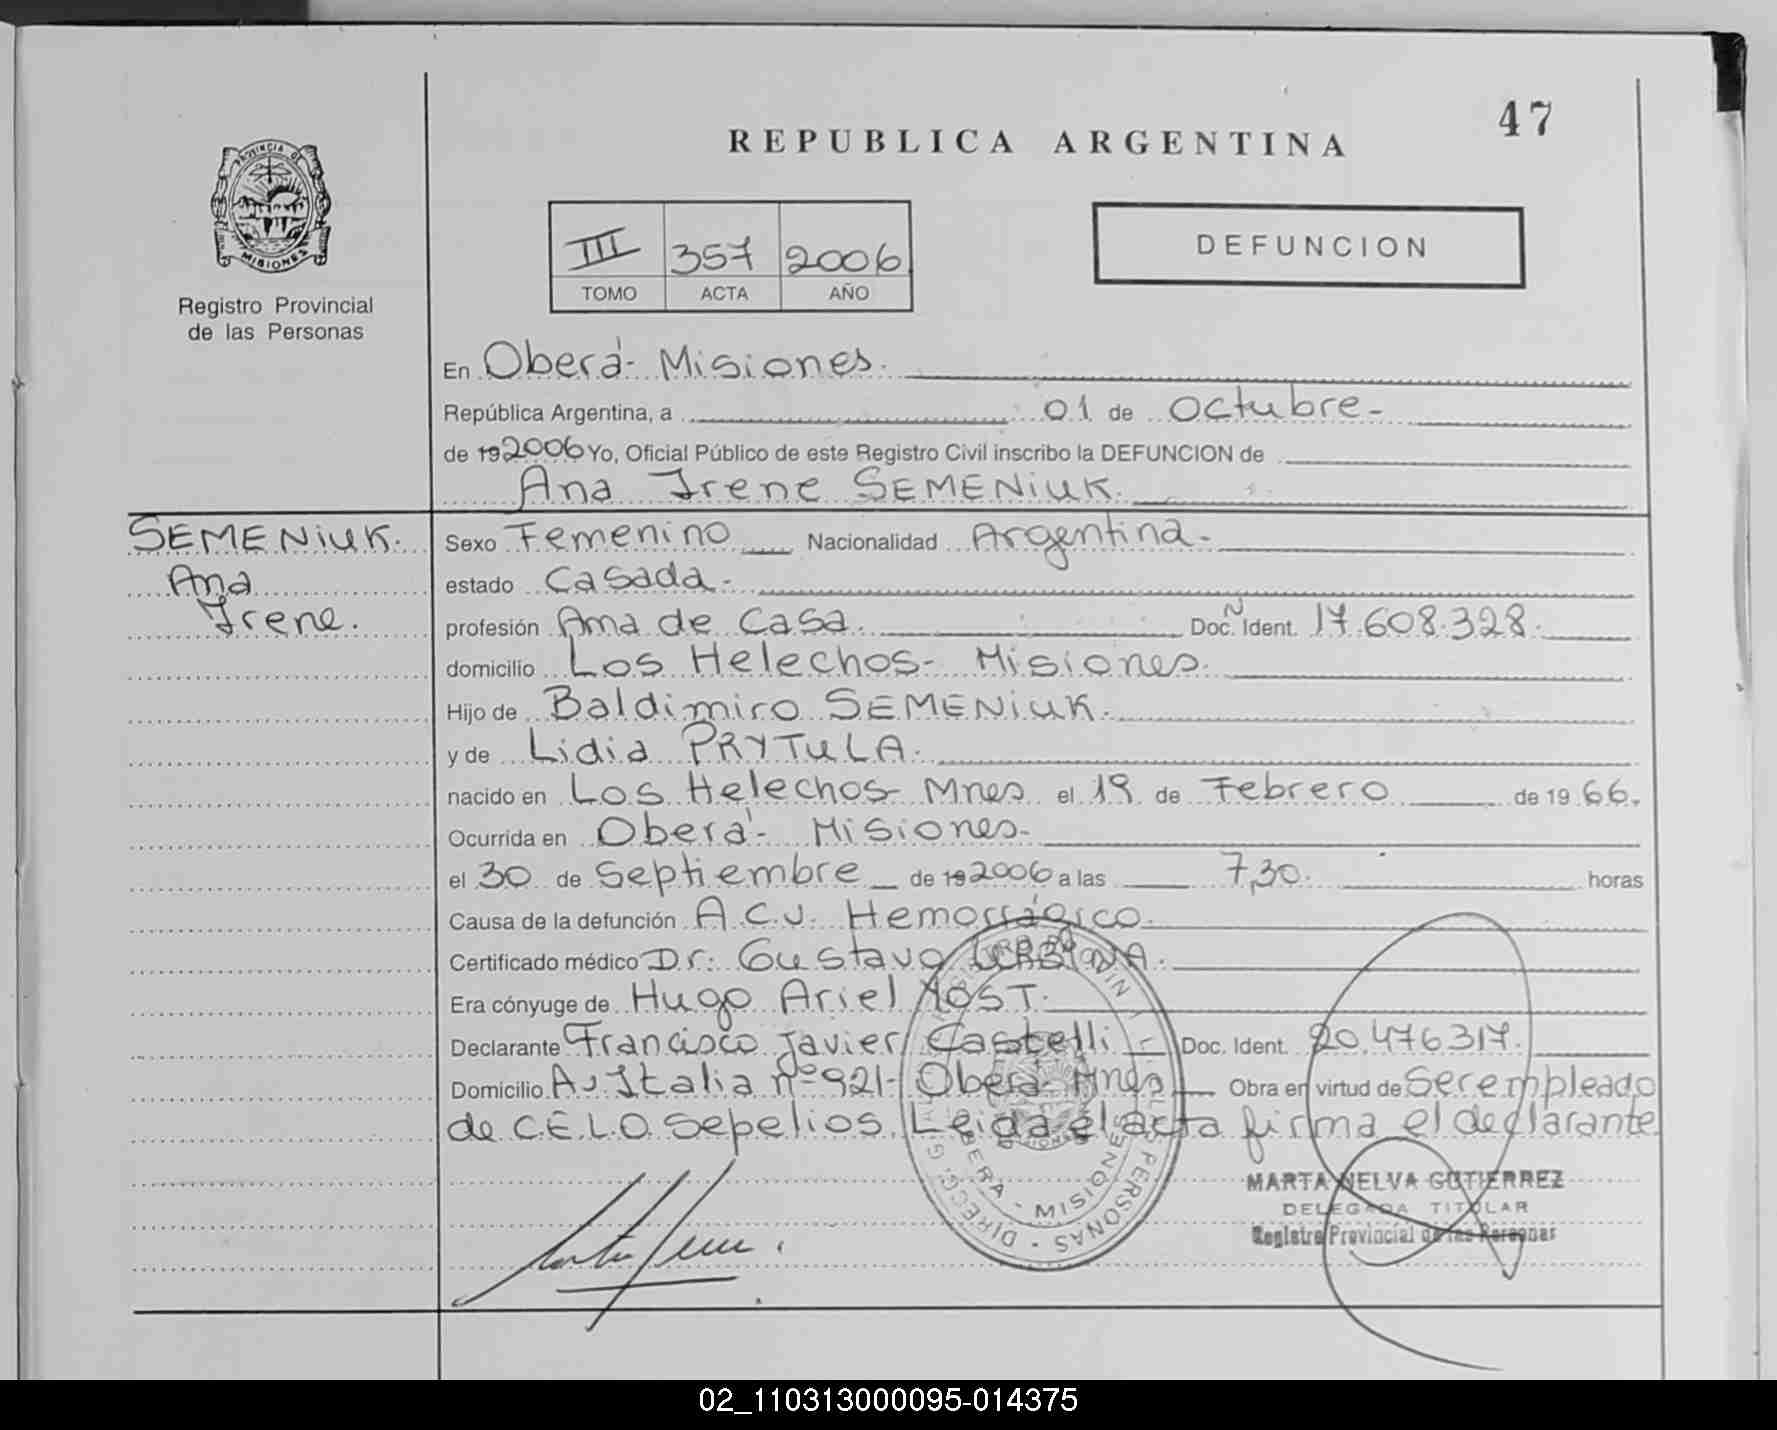 47
REPUBLICA ARGENTINA
PROVINCIA DE
MISIONES
Registro Provincial
de las Personas
III 357 2006
TOMO ACTA AÑO
DEFUNCION
En Oberá- Misiones.
República Argentina, a 01 de Octubre-
de 19 2006 Yo, Oficial Público de este Registro Civil inscribo la DEFUNCION de
Ana Irene SEMENIUK.
SEMENIUK.
Ana
Irene.
Sexo Femenino Nacionalidad Argentina-
estado Casada-
profesión Ama de Casa. Doc. Nº Ident. 17.608.328.
domicilio Los Helechos- Misiones.
Hijo de Baldimiro SEMENIUK.
y de Lidia PRYTULA.
nacido en Los Helechos- Mnes el 19 de Febrero de 19 66.
Ocurrida en Oberá- Misiones-
el 30 de Septiembre de 19 2006 a las 7,30. horas
Causa de la defunción A.C.V. Hemorrágico.
Certificado médico Dr. Gustavo URBINA.
Era cónyuge de Hugo Ariel YOST.
Declarante Francisco Javier Castelli Doc. Ident. 20.476317.
Domicilio Av Italia nº 921- Oberá- Mnes Obra en virtud de Ser empleado
de C.E.L.O. Sepelios. Leida el acta firma el declarante
OBERA - MISIONES
MARTA NELVA GUTIERREZ
DELEGADA TITULAR
Registro Provincial de las Personas
02_110313000095-014375